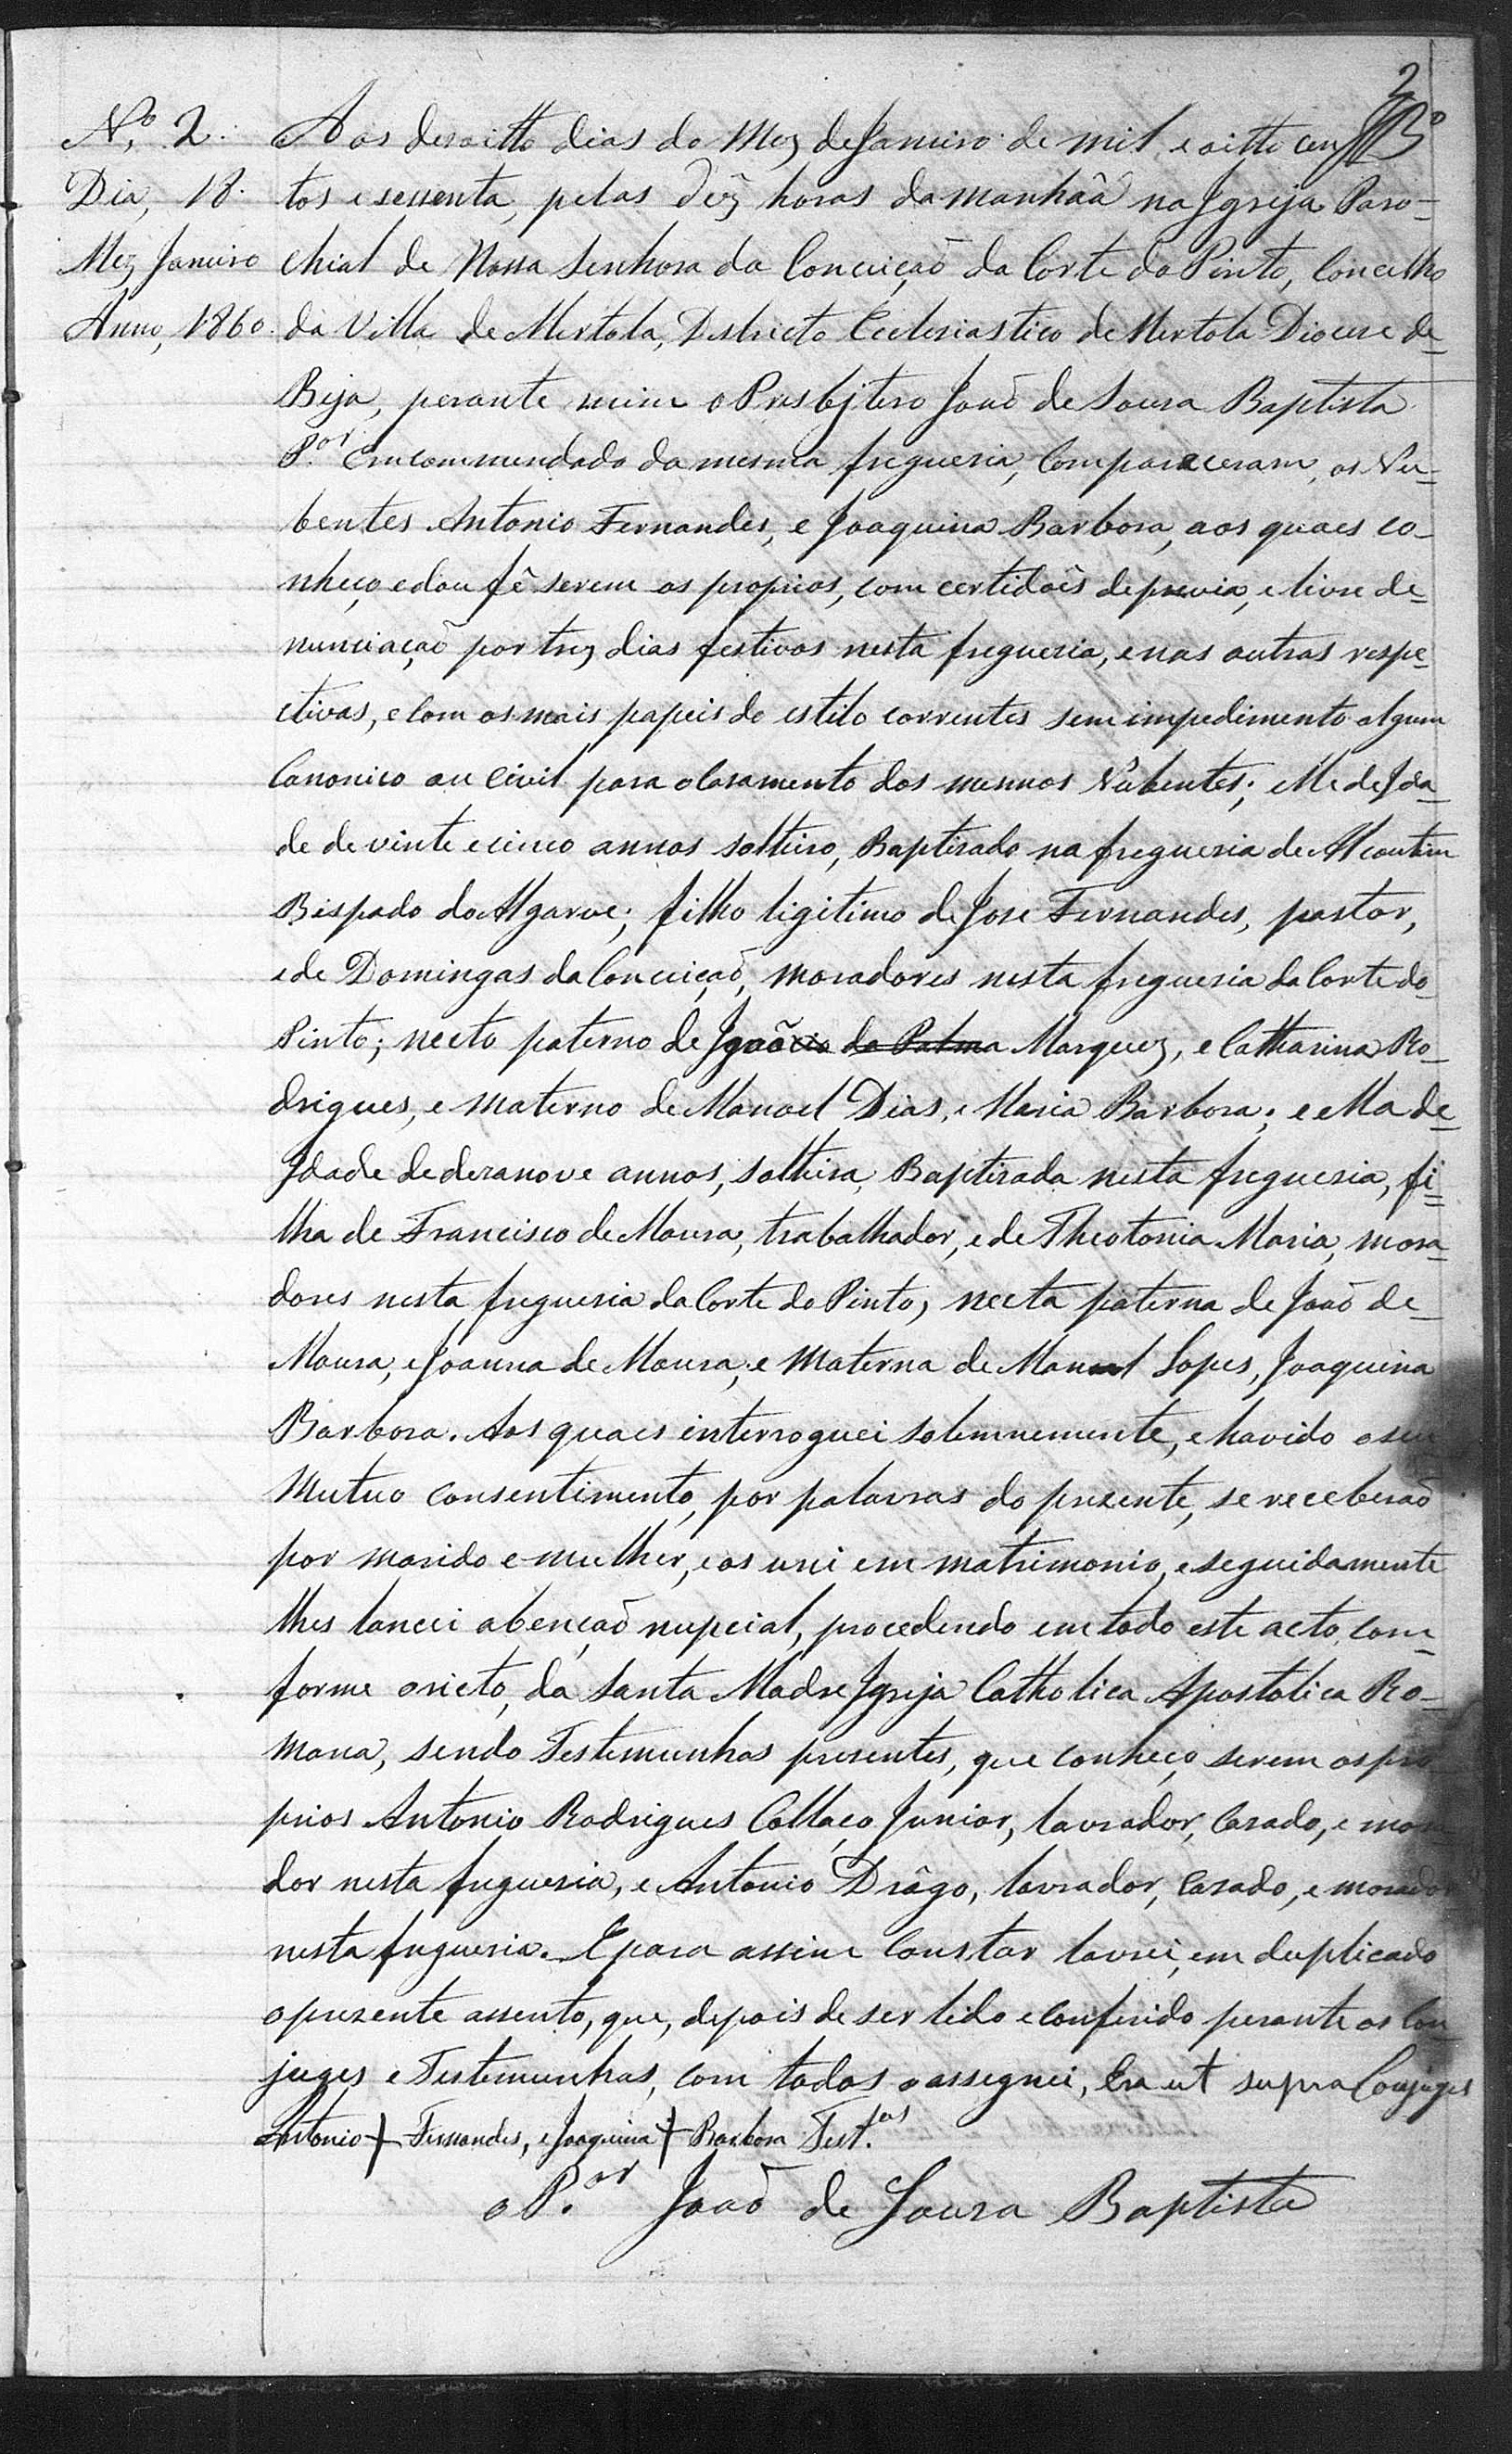 2
N.º 2.
Dia, 18.
Mez, Janeiro
Anno, 1860.
Aos desoitto dias do Mez de Janeiro de mil e oitto cen
tos e sessenta, pelas dêz horas da manhãa na Igreja Paro-
chial de Nossa Senhora da Conceição da Corte do Pinto, Concelho
da Villa de Mertola, Destricto Ecclesiastico de Mertola Diocese de
Beja, perante mim o Presbjtero João de Souza Baptista
P.or Emcommendado da mesma freguesia, Compareceram, os Nu-
bentes Antonio Fernandes, e Joaquina Barboza, aos quaes co-
nheço e dou fê serem os proprios, com certidoês de previa, e livre de-
nunciação por trez dias festivos nesta freguesia, e nas outras respe-
ctivas, e com os mais papeis do estilo correntes sem impedimento algum
Canonico ou Civil para o Casamento dos mesmos Nubentes; elle de Ida-
de de vinte e cinco annos solteiro, Baptisado na freguesia de Alcoutim
Bispado do Algarve; filho ligitimo de Jose Fernandes, pastor,
e de Domingas da Conceição, moradores nesta freguesia da Corte do
Pinto; necto paterno de da Palma Marquez, e Catharina Ro-
drigues, e materno de Manoel Dias, e Maria Barbora; e ella de
Idade de deranove annos, solteira, Baptisada nesta freguesia, fi-
lha de Francisco de Moura, trabalhador, e de Theotonia Maria, mora-
dores nesta freguesia da Corte do Pinto, necta paterna de João de
Moura, e Joanna de Moura, e Materna de Manoel Lopes, Joaquina
Barbora. Aos quaes interroguei solemnemente, e havido o seu
Mutuo consentimento, por palavras do prezente, se receberaõ
por marido e mulher, e os uni em matrimonio, e seguidamente
lhes lancei a bençaõ nupcial, procedendo em todo este acto, com-
forme o rieto, da Santa Madre Igreja Catholica Apostolica Ro-
mana, sendo Testemunhas presentes, que conheço serem os pro
prios Antonio Rodrigues Collaço Junior, lavrador, Casado, e mora
dor nesta freguesia, e Antonio Drâgo, lavrador, Casado, e morador
nesta freguesia. E para assim Constar lavrei, em duplicado
o prezente assento, que, depois de ser lido e conferido perante os Con-
juges e Testemunhas, com todos o assegnei, Era ut supra Conjuges
Antonio + Fernandes, e Joaquina + Barbora Test.as
o P.or João de Souza Baptista